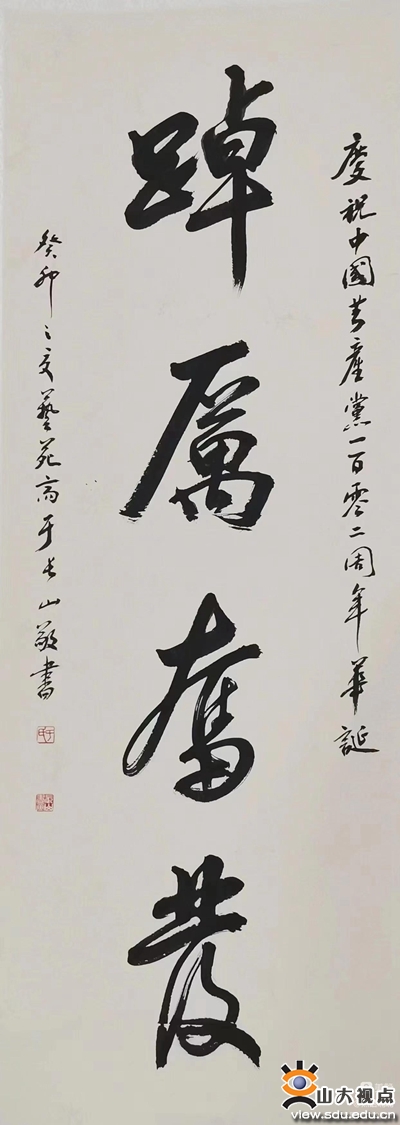 慶祝中國共產黨一百零二周年華誕
踔厲奮發
癸卯之夏藝苑于長山敬書
山大视点
view.sdu.edu.cn